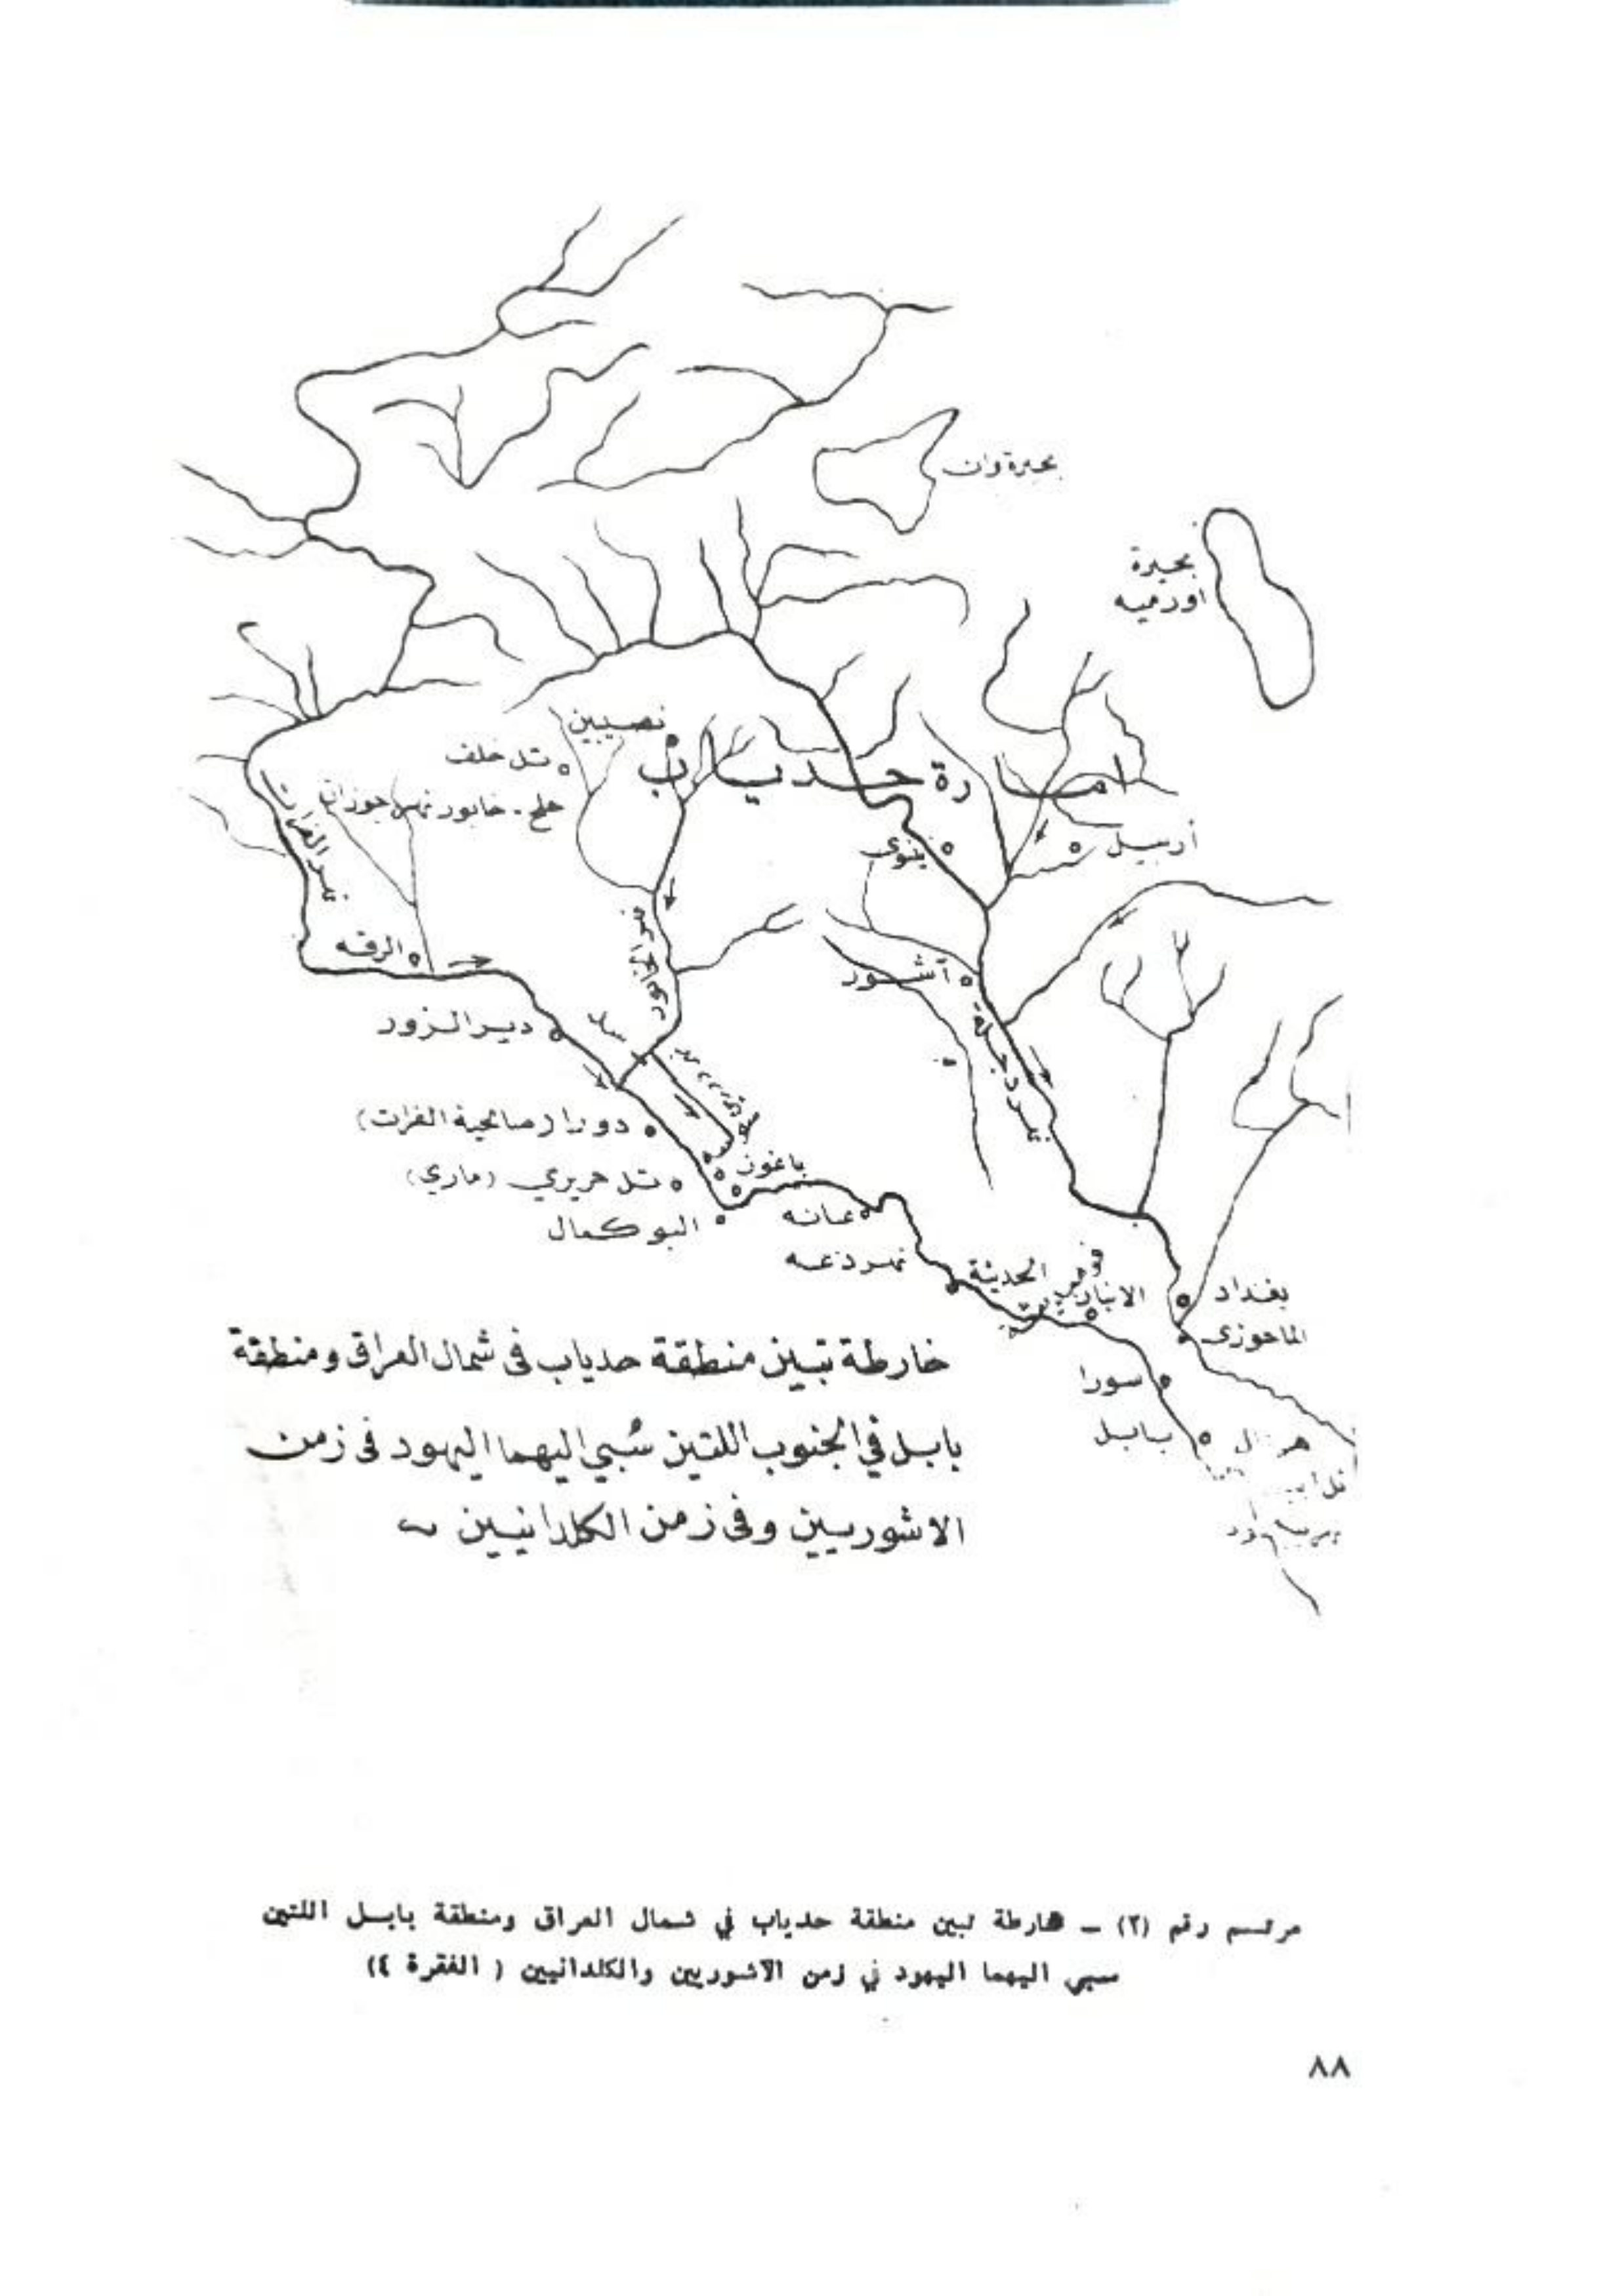 بحيرة وان
بحيرة
اورميه
نصيبين
تل خلف
امارة حدياب
حلح - خابور نهر جوزان
نهر الفرات
نينوى
أربيل
نهر الخابور
الرقه
آشور
دير الزور
نهر دجلة
دورا (صالحية الفرات)
باغوز
تل حريري (ماري)
عانه
البو كمال
نهر دعه
الحديثة
الانبار
بغداد
الماحوزى
سورا
بابل
خارطة تبين منطقة حدياب فى شمال العراق ومنطقة
بابل في الجنوب اللتين سُبي اليهما اليهود فى زمن
الاشوريين وفى زمن الكلدانيين
مرتسم رقم (٢) – خارطة تبين منطقة حدياب في شمال العراق ومنطقة بابل اللتين
سبي اليهما اليهود في زمن الآشوريين والكلدانيين ( الفقرة ٤)
٨٨